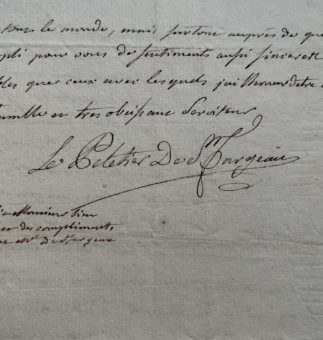 tout le monde, mais surtout auprès de
pli pour vous de sentiments aussi sinceres
que ceux avec lesquels jai lhonneur detre
humble et tres obeissant serviteur
Le Peletier De St fargeau
Monsieur
des compliments
Mr De